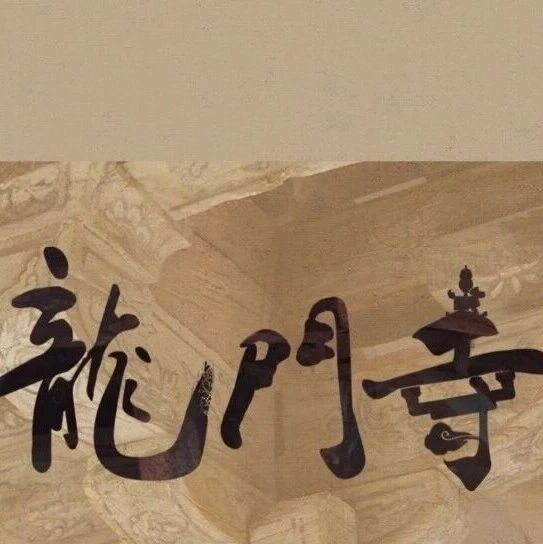 龍門寺